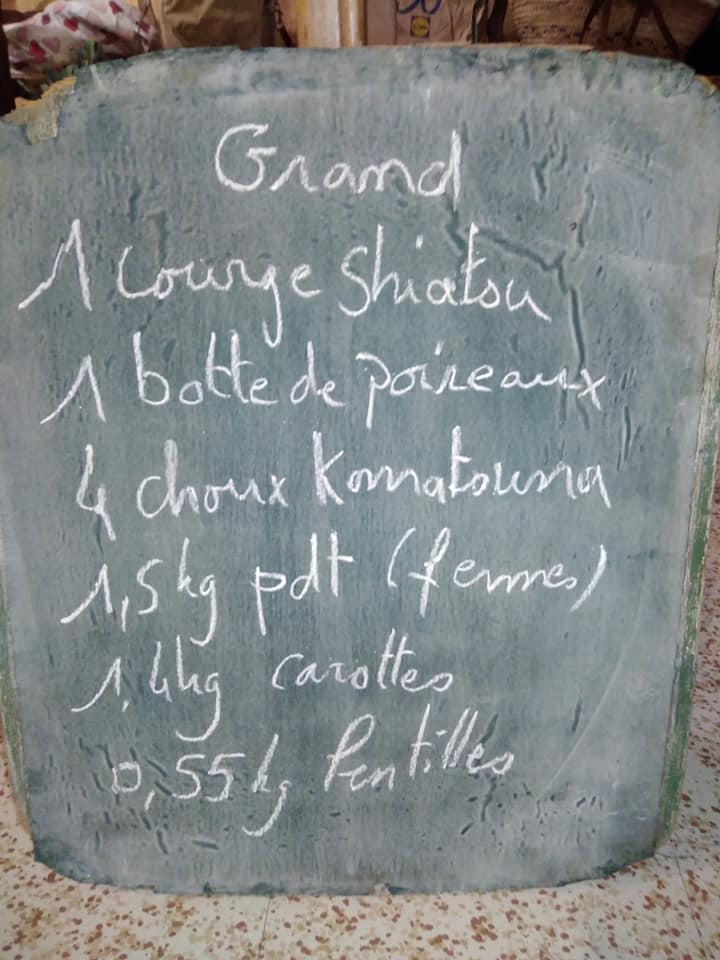 Grand
1 courge Shiatsu
1 botte de poireaux
4 choux Komatsuna
1,5 kg pdt (fermes)
1,4 kg carottes
0,55 kg lentilles